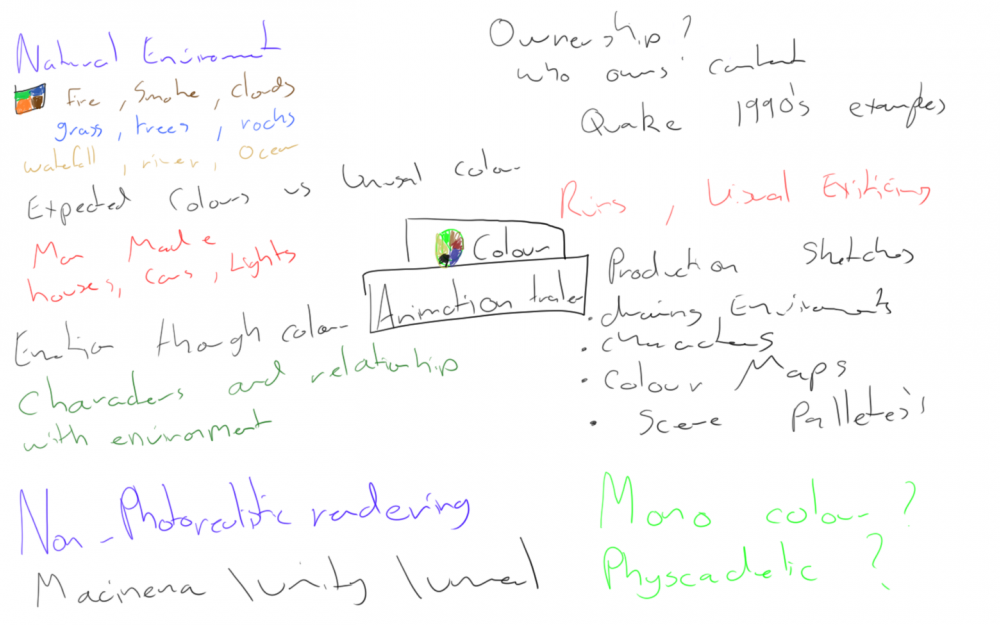 Natural Enviroment
Fire, Smoke, Clouds
grass, trees, rocks
waterfall, river, Ocean
Expected Colours vs Unusal colour
Man Made
houses, Cars, Lights
Emotion though colour
Characters and relationship
with environment
Non-Photorealistic rendering
Macinema \ unity \ unreal
Colour
Animation trailer
Ownership?
who owns content
Quake 1990's examples
Ruins, Visual
Production Sketches
• drawing Enviroments
• characters
• Colour Maps
• Scene Palletes's
Mono colour?
Physcadelic?